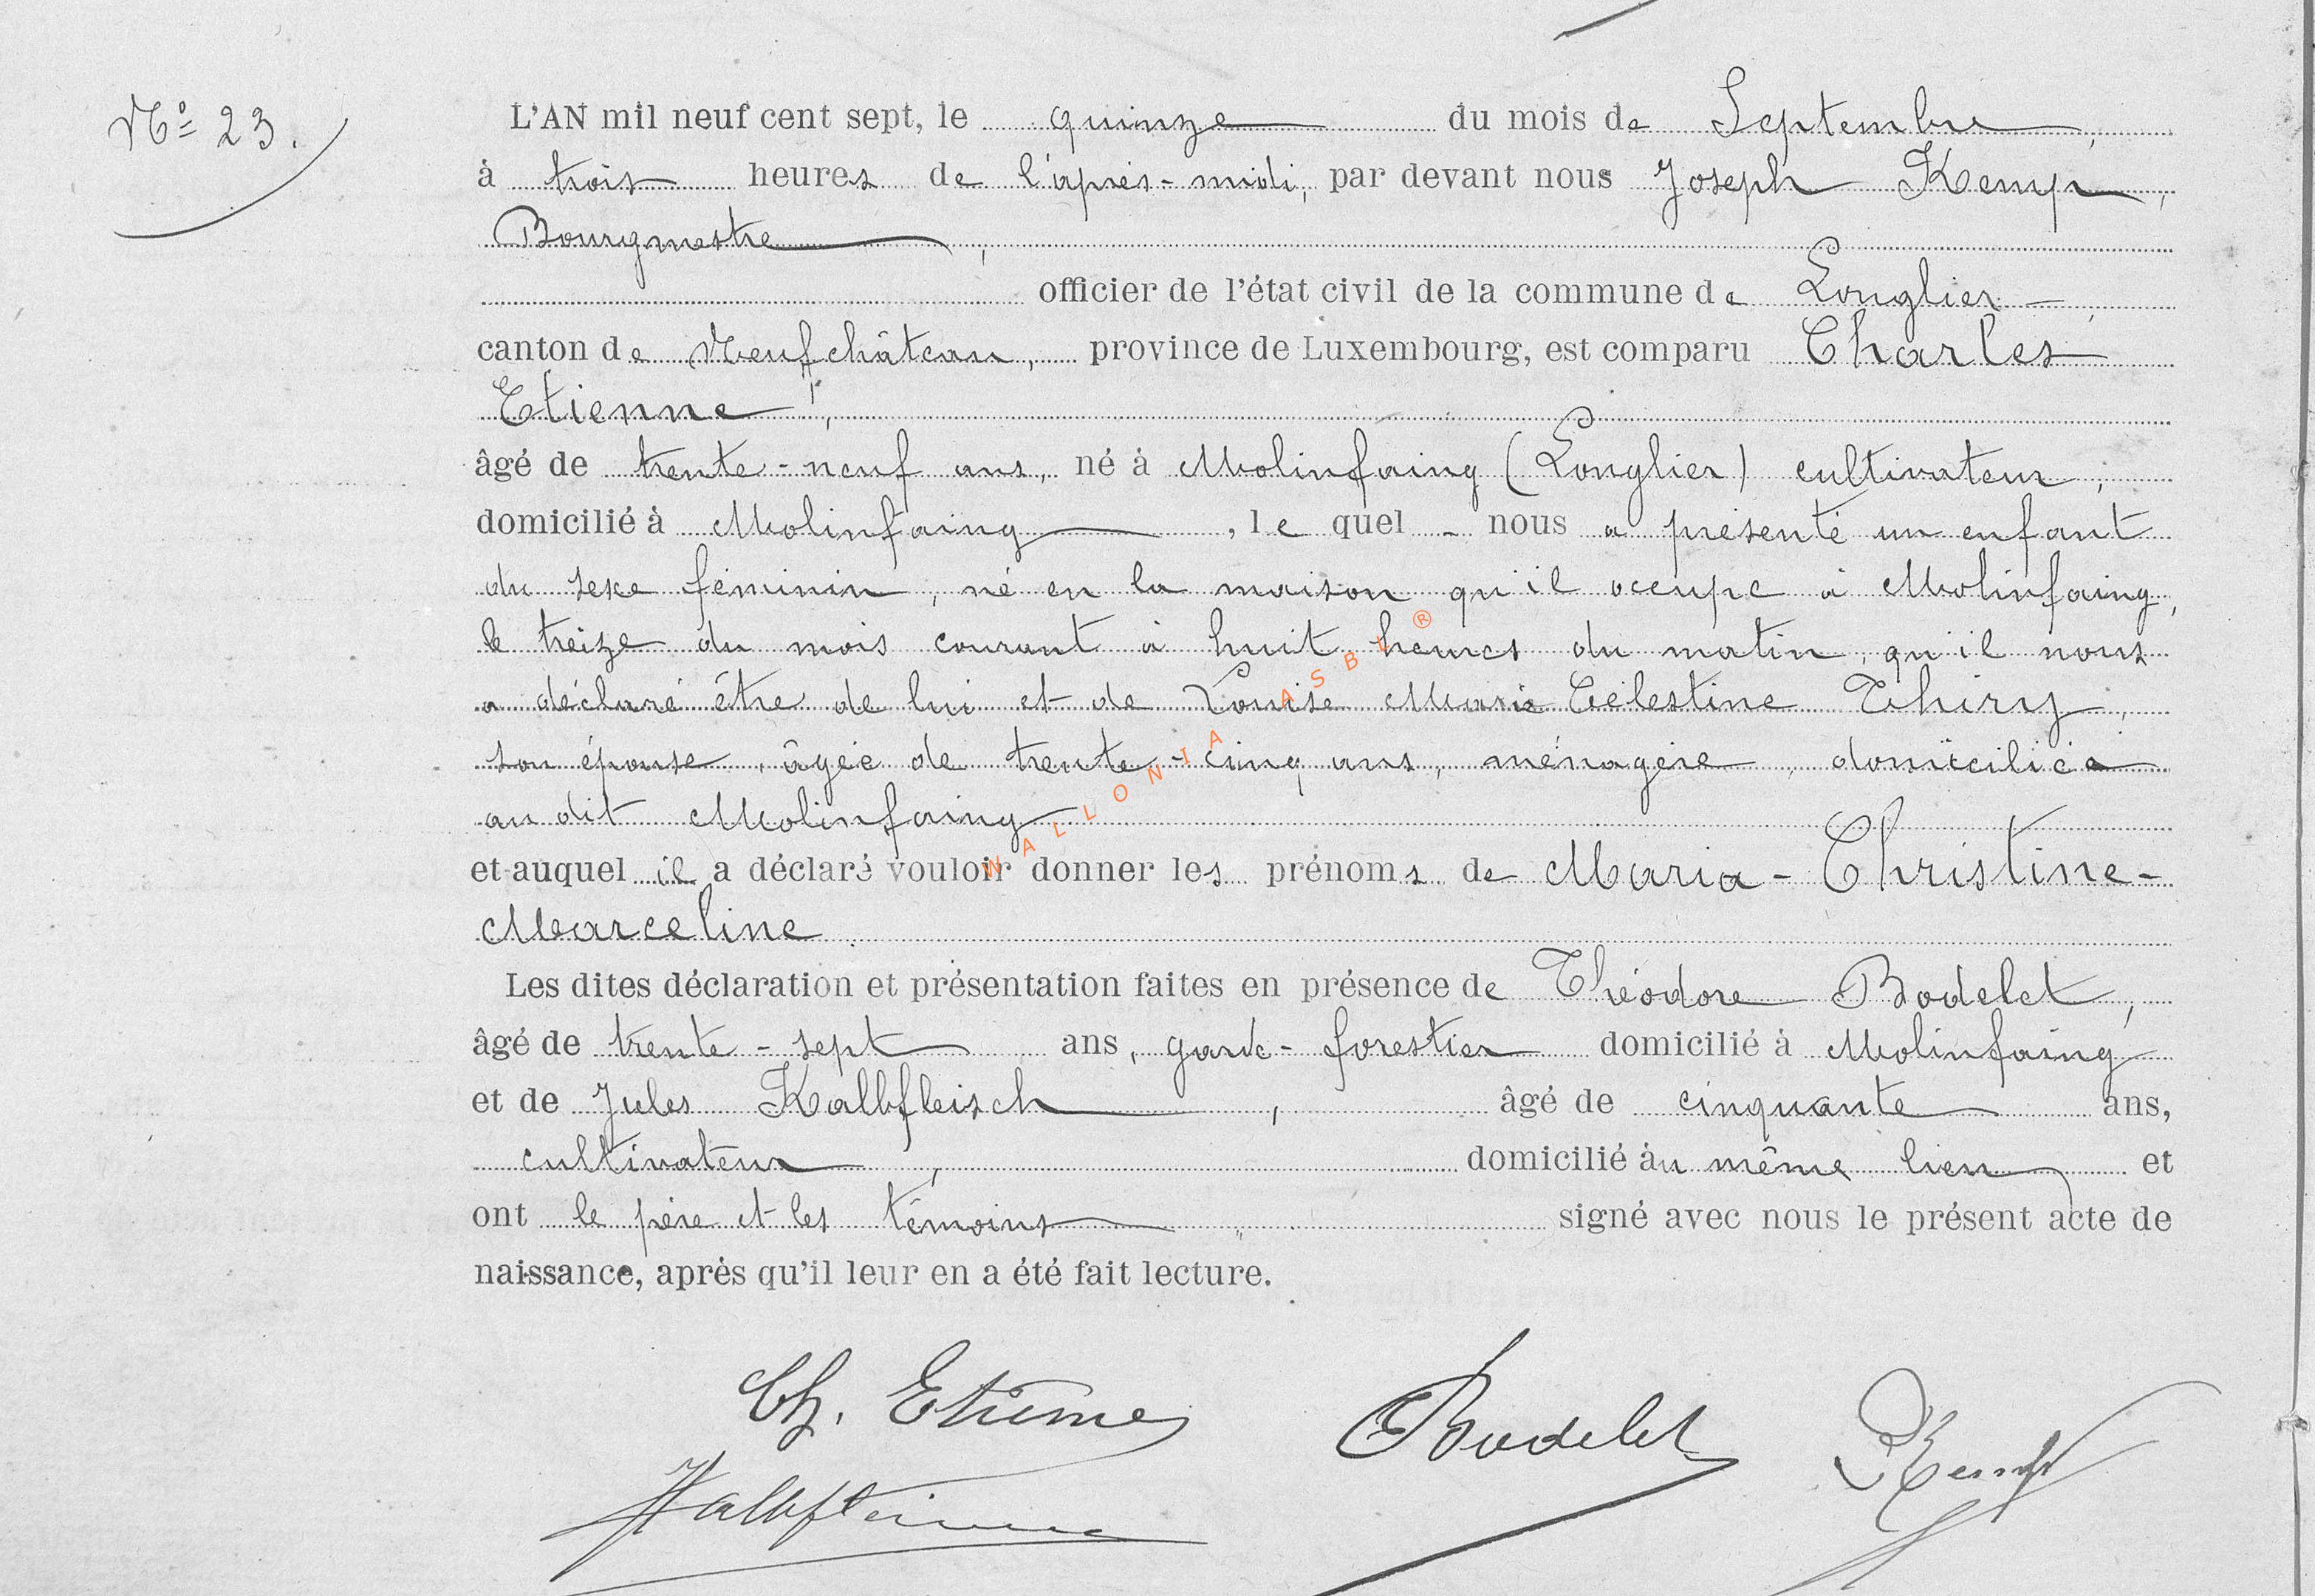 N° 23.
L'AN mil neuf cent sept, le quinze du mois de Septembre,
à trois heures de l'après-midi, par devant nous Joseph Kemp,
Bourgmestre,
officier de l'état civil de la commune de Longlier,
canton de Neufchâteau, province de Luxembourg, est comparu Charles
Etienne,
âgé de trente-neuf ans, né à Molinfaing (Longlier) cultivateur,
domicilié à Molinfaing, lequel - nous a présenté un enfant
du sexe féminin, né en la maison qu'il occupe à Molinfaing,
le treize du mois courant à huit heures du matin, qu'il nous
a déclaré être de lui et de Louise Marie Célestine Thiry,
son épouse, âgée de trente-cinq ans, ménagère, domiciliée
au dit Molinfaing
et auquel il a déclaré vouloir donner les prénoms de Maria-Christine-
Marceline.
Les dites déclaration et présentation faites en présence de Théodore Bodelet,
âgé de trente-sept ans, garde-forestier domicilié à Molinfaing
et de Jules Kalbfleisch, âgé de cinquante ans,
cultivateur, domicilié au même lieu et
ont le père et les témoins signé avec nous le présent acte de
naissance, après qu'il leur en a été fait lecture.
Ch. Etienne Bodelet Kemp
WALLONIA ASBL ®